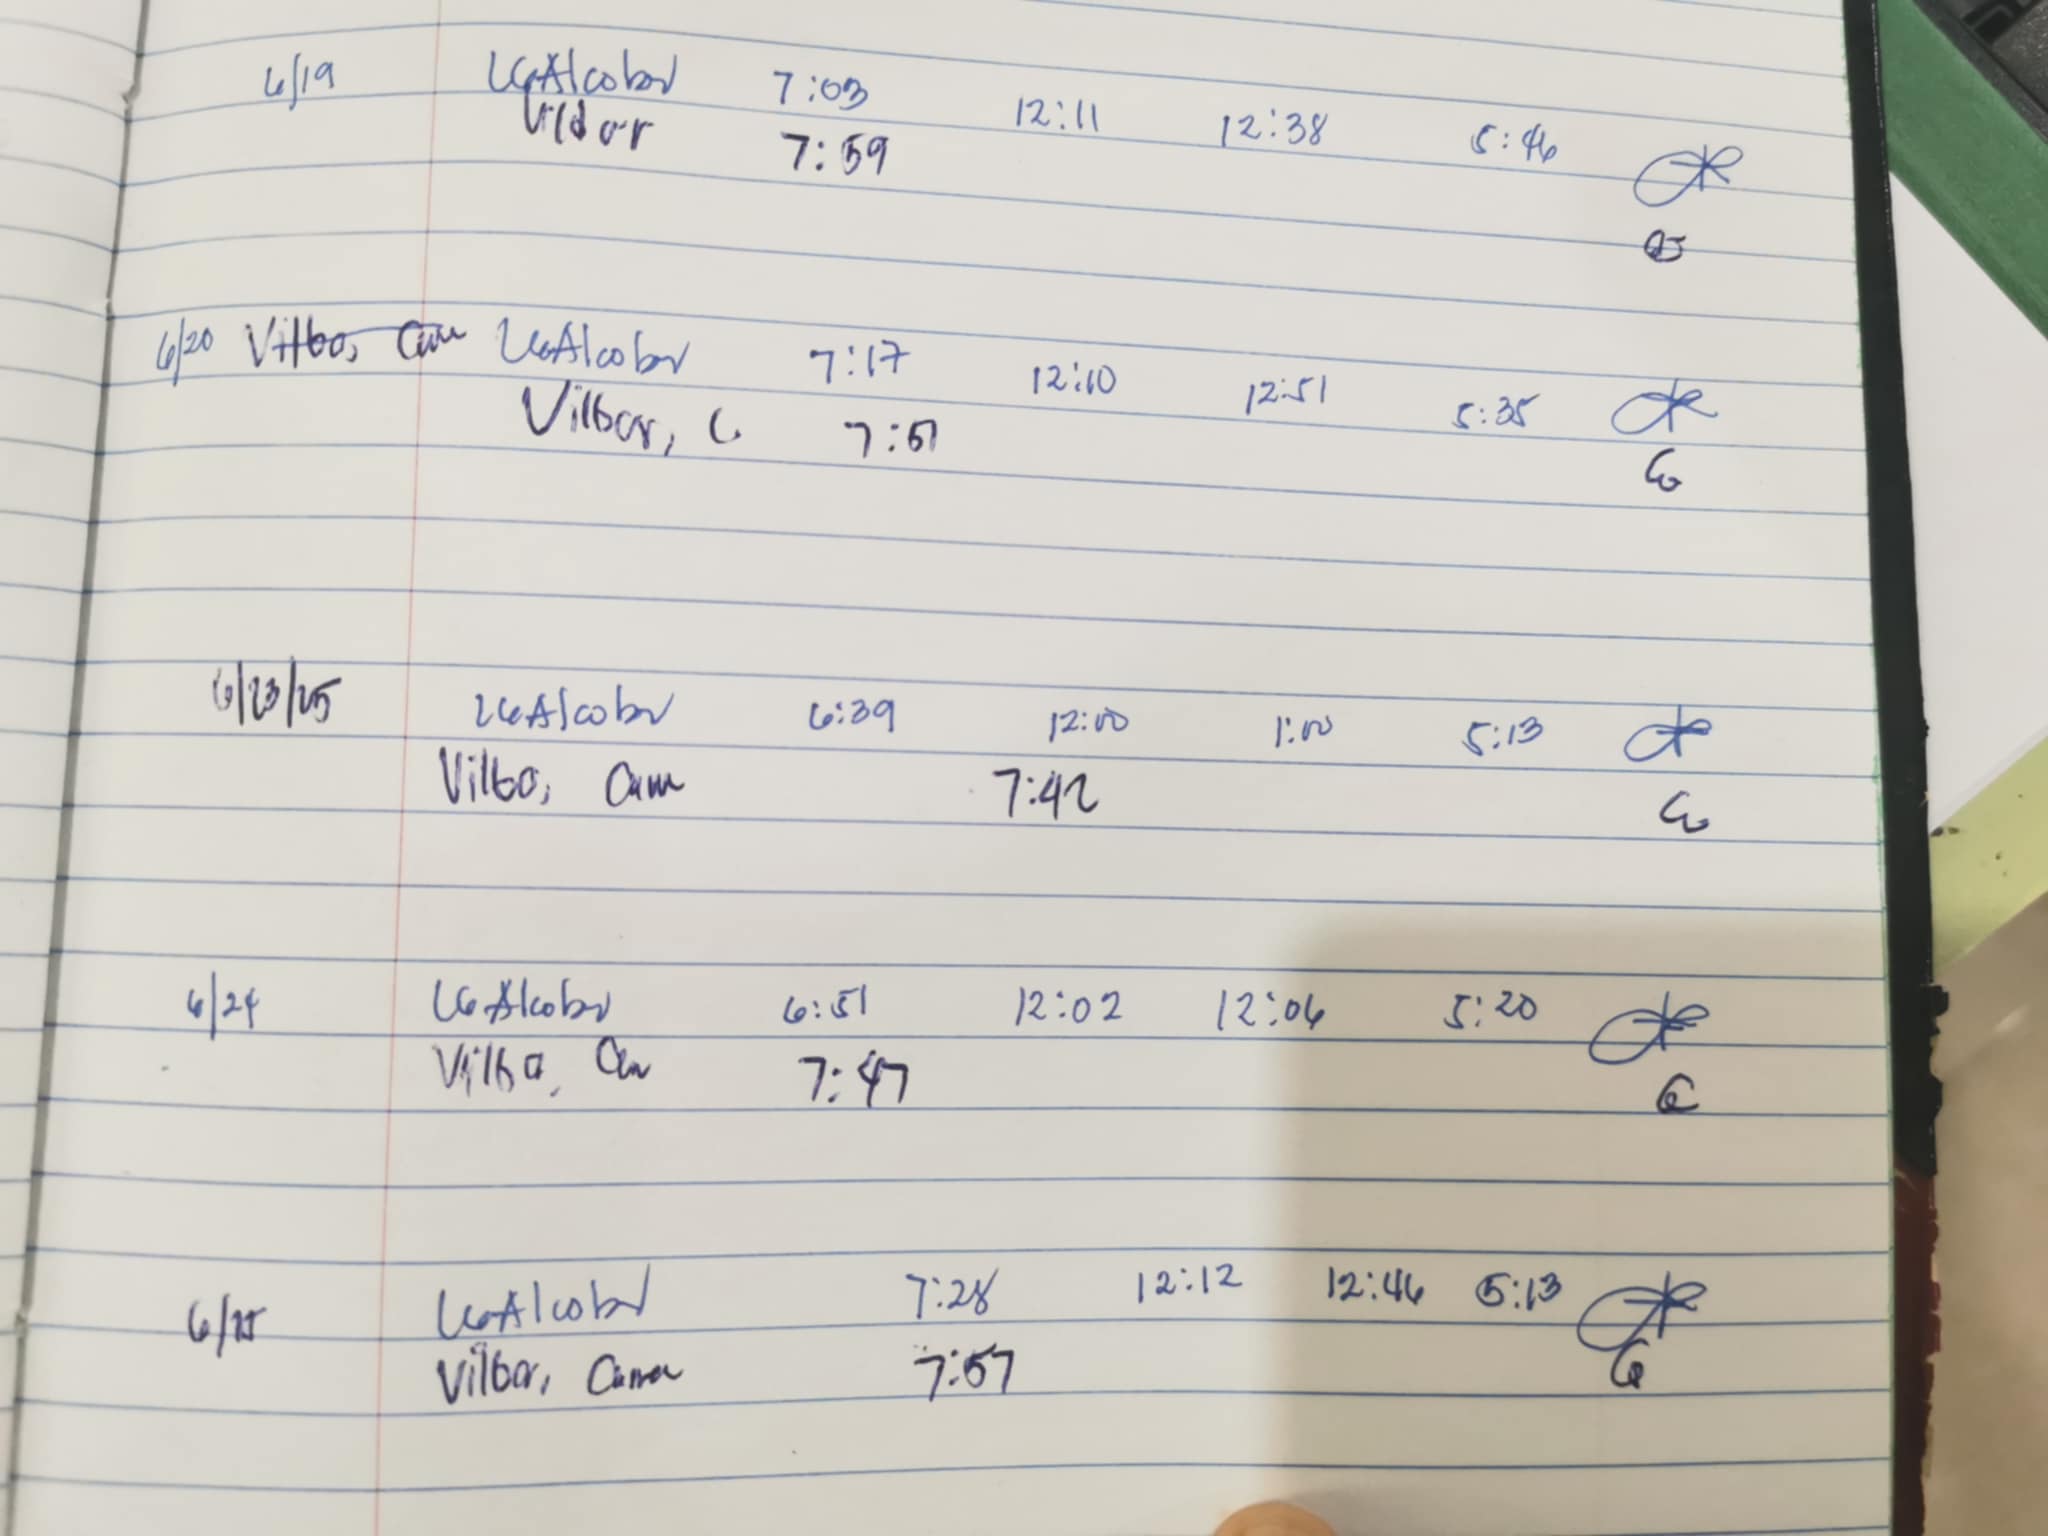 6/19 LGAlcober 7:03 12:11 12:38 5:46
Vilbar 7:59
6/20 Vilba, Cam LGAlcober 7:17 12:10 12:51 5:35
Vilbar, C 7:51
6/23/25 LGAlcober 6:39 12:00 1:00 5:13
Vilba, Cam 7:42
6/24 LGAlcober 6:51 12:02 12:06 5:20
Vilba, 7:47
6/25 LGAlcober 7:28 12:12 12:46 5:13
Vilbar, 7:57